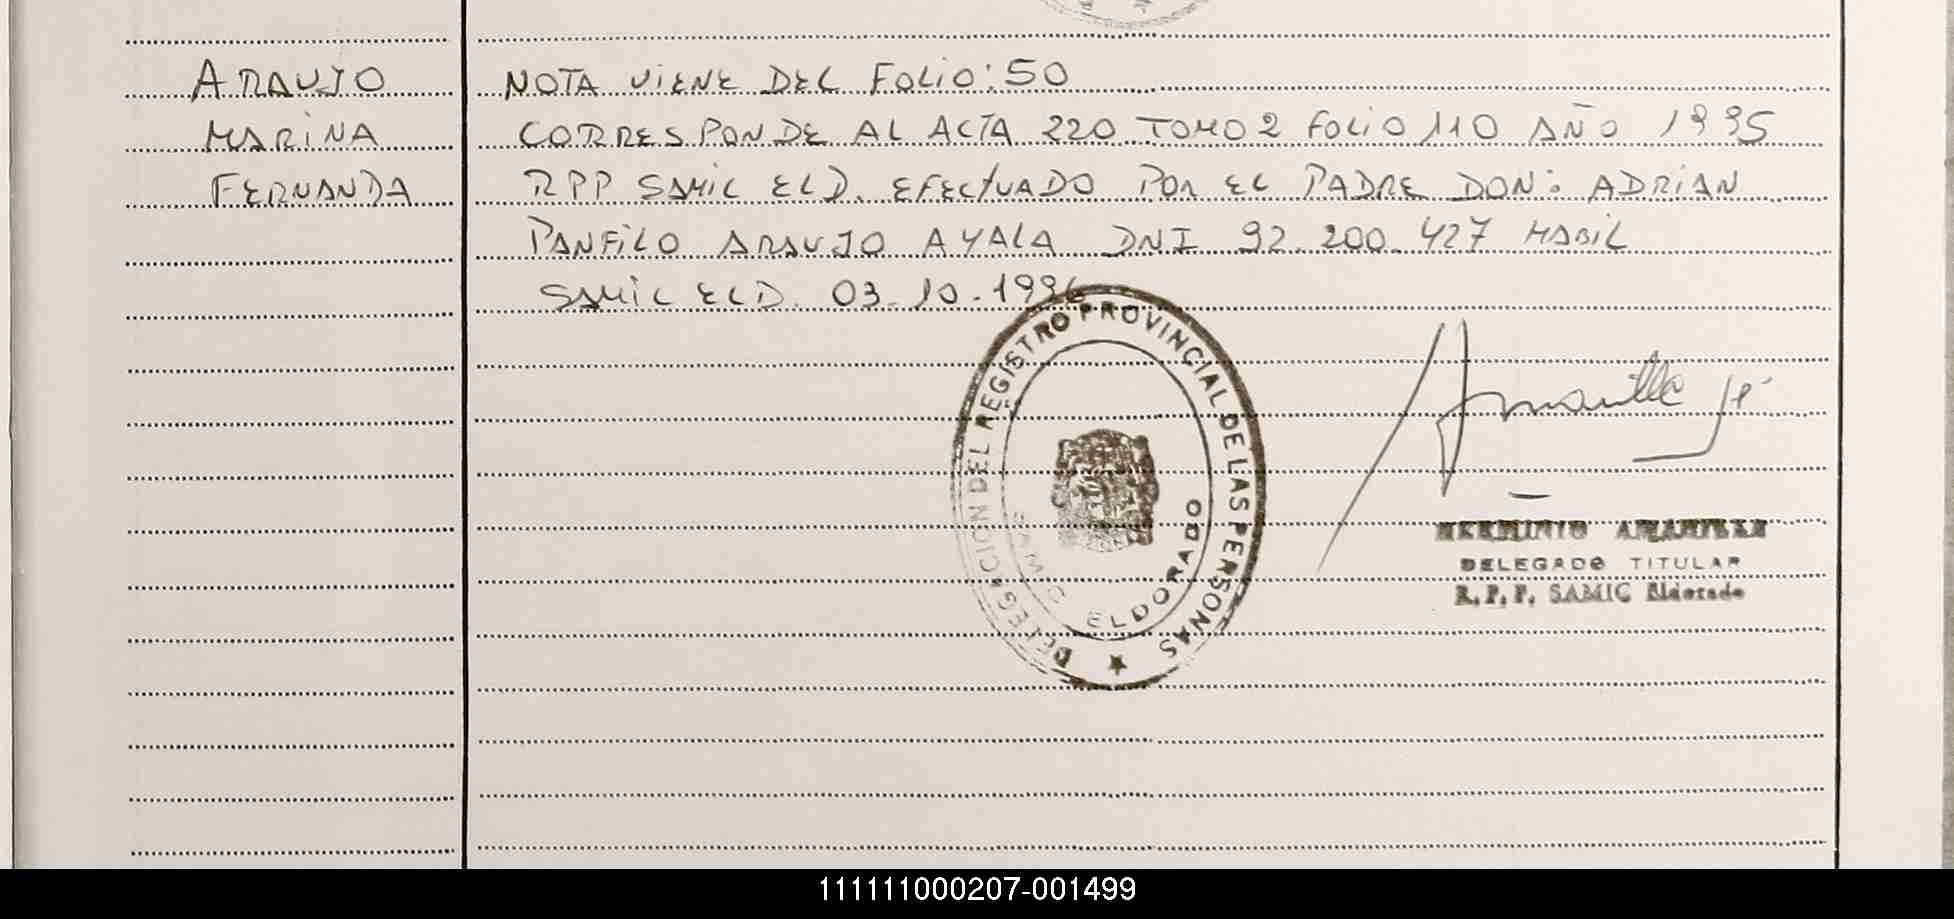 ARAUJO
MARINA
FERNANDA
NOTA VIENE DEL FOLIO: 50
CORRESPONDE AL ACTA 220 TOMO 2 FOLIO 110 AÑO 1995
RPP SAMIC ELD. EFECTUADO POR EL PADRE DON: ADRIAN
PANFILO ARAUJO AYALA DNI 92.200.427 HABIL
SAMIC ELD. 03-10-1996
DELEGACION DEL REGISTRO PROVINCIAL DE LAS PERSONAS
SAMIC ELDORADO
HERMINIO AMARILLA
DELEGADO TITULAR
R.P.P. SAMIC Eldorado
111111000207-001499